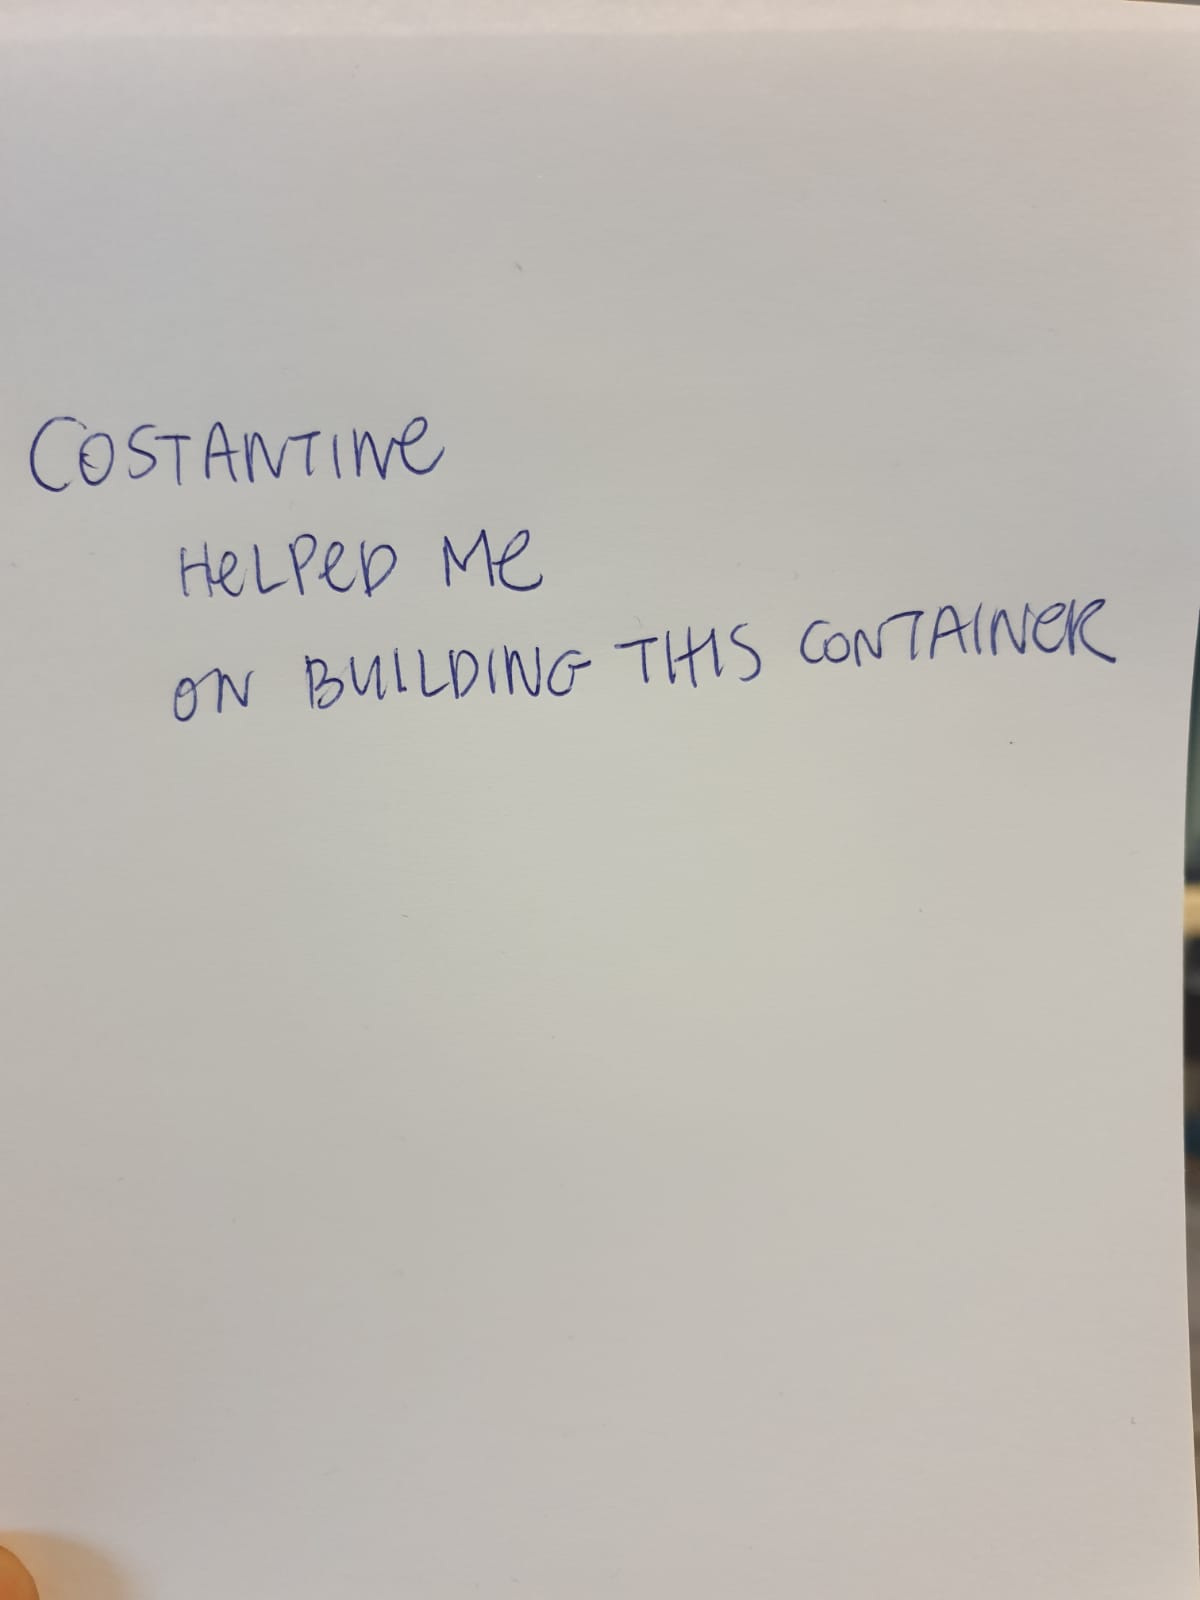 COSTANTINE
HELPED ME
ON BUILDING THIS CONTAINER